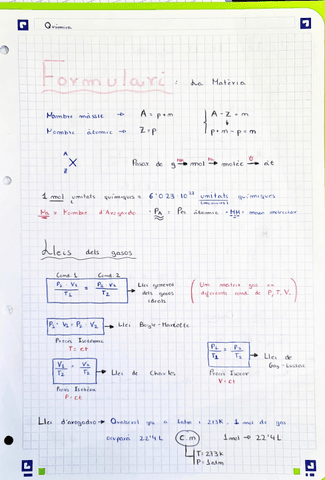 Química
Formulari: La Matèria
Nombre màssic → A = p + n
A - Z = n
Nombre atòmic → Z = p
p + n - p = n
A
X
Z
Passar de g → mol → molèc → àt
1 mol unitats químiques = 6'023·10²³ unitats químiques
= Nombre d'Avogadro · PA = Pes atòmic · MM = massa molecular
Lleis dels gasos
Cond. 1 Cond. 2
P1 · V1 / T1 = P2 · V2 / T2 → Llei general dels gasos ideals
(Un mateix gas en diferents cond. de P, T, V.)
P1 · V1 = P2 · V2 → Llei Boyle-Mariotte
T = ct
V1 / T1 = V2 / T2 → Llei de Charles
P = ct
P1 / T1 = P2 / T2 → Llei de Gay-Lussac
V = ct
Llei d'Avogadro → Qualsevol gas a 1 atm i 273K, 1 mol de gas
ocuparà 22'4 L
C.n
1 mol → 22'4 L
T: 273K
P: 1 atm